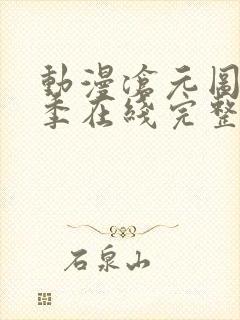 動漫滄元圖
季在綫完整
石泉山